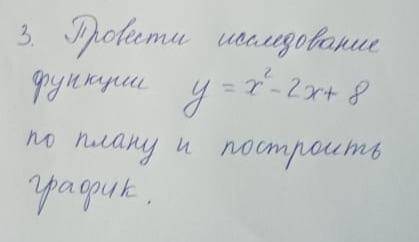 3. Провести исследование
функции y = x² - 2x + 8
по плану и построить
график.